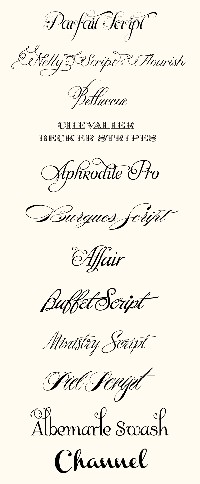 Parfait Script
Kelly Script Flourish
Bellucia
CHEVALIER
BECKER STRIPES
Aphrodite Pro
Burgues Script
Affair
Buffet Script
Ministry Script
Piel Script
Albemarle Swash
Channel